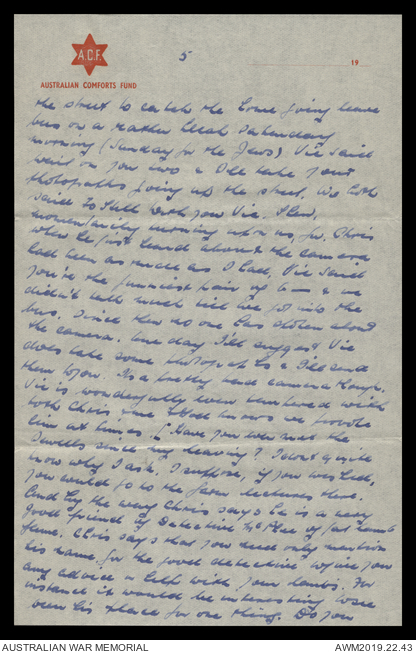 5
A.C.F.
19
AUSTRALIAN COMFORTS FUND
the street to catch the home going leave
bus on a rather bleak Saturday
morning (Sunday for the Jews) Vic said
wait on you two & I'll take your
photographs going up the street. We both
said to hell with you Vic.
momentarily turning upon us, for Chris
when he first heard about the camera
had been as much as I had, Vic said
you're the funniest pair of b— & we
didn't talk much till we got into the
bus. Since then no one has spoken about
the camera. One day I'll suggest Vic
does take some photographs & I'll send
them to you. It's a pretty good camera though.
Vic is wonderfully even tempered with
both Chris & me & God knows we provoke
him at times. Have you ever met the
Jewells since my leaving? I don't quite
know why I ask. I suppose, if you was here,
you would go to the farm lectures there.
And by the way Chris says he is a very
good friend of Detective McRae of fat lamb
fame. Chris says that you need only mention
his name for the good detective to give you
any advice & help with your lambs. For
instance it would be interesting
been his place for one thing. Do you
AUSTRALIAN WAR MEMORIAL
AWM2019.22.43